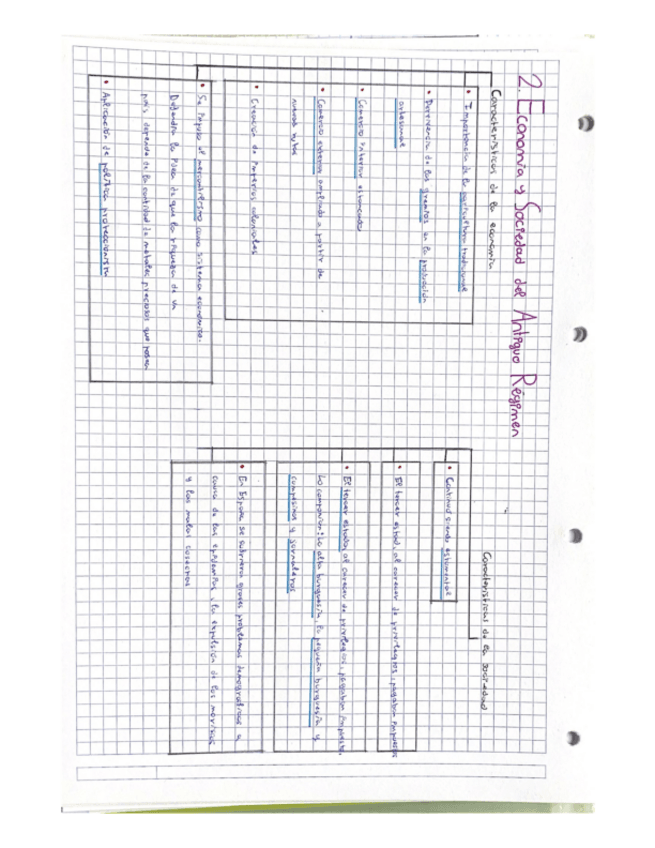 2. Economía y Sociedad del Antiguo Régimen
Características de la economía
• Importancia de la agricultura tradicional
• Pervivencia de los gremios en la producción
artesanal
• Comercio interior estancado
• Comercio externo ampliado a partir de
nuevas rutas
• Creación de imperios coloniales
• Se impuso el mercantilismo como sistema económico.
Defendía la idea de que la riqueza de un
país depende de la cantidad de metales preciosos que posean
• Aplicación de política proteccionista
Características de la sociedad
• Continuó siendo estamental
• El tercer estado, al carecer de privilegios, pagaban impuestos
• El tercer estado, al carecer de privilegios, pagaban impuestos.
Lo componían: La alta burguesía, la pequeña burguesía y
campesinos y jornaleros
• En España se sufrieron graves problemas demográficos a
causa de las epidemias, la expulsión de los moriscos
y las malas cosechas